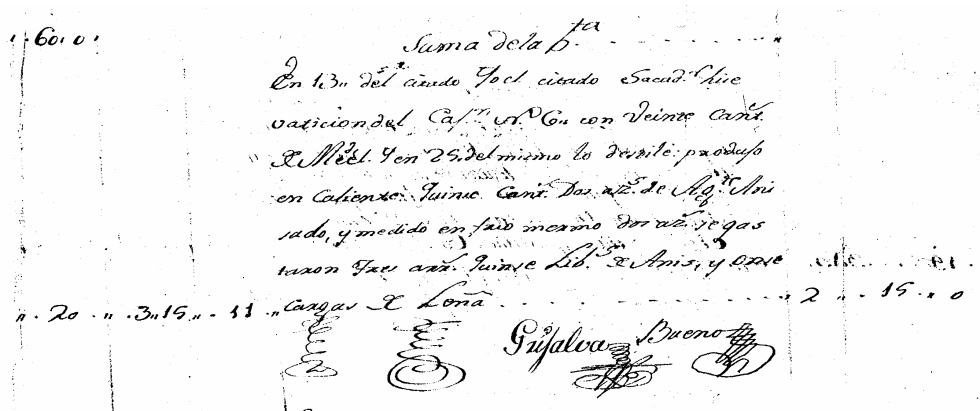 60 " 0 "
Suma de la b.ta
En 13,, del citado Yo el citado Sacad.r hise
vasicion del Cas.n N.º 6,, con Veinte Cant.s
de Miel. Y en 25,, del mismo lo destile produjo
en Caliente Quinse Cant.s Dos az.s de Ag.te Ani
sado, y medido en frio mermo dos az.s se gas
taron Tres arr.s Quinse Lib.s de Anis, y Onse
" 20 " 3 " 15 " 11 " Cargas de Leña " 2 " 15 " 0
Grijalva Bueno